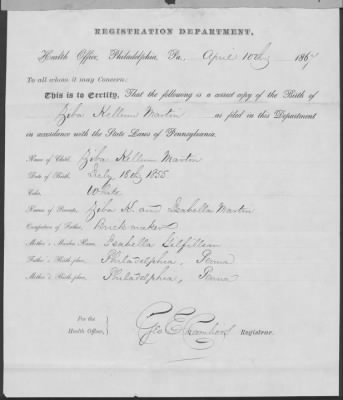 REGISTRATION DEPARTMENT,
Health Office, Philadelphia, Pa., April 10th 1867
To all whom it may Concern:
This is to Certify, That the following is a correct copy of the Birth of
Ziba Kellum Martin as filed in this Department
in accordance with the State Laws of Pennsylvania.
Name of Child, Ziba Kellum Martin
Date of Birth, July 18th 1855
Color, White
Names of Parents, Ziba K. and Isabella Martin
Occupation of Father, Brick maker
Mother's Maiden Name, Isabella Gilfillan
Father's Birth-place, Philadelphia, Penna
Mother's Birth-place, Philadelphia, Penna
For the
Health Officer,
Geo E Chambers Registrar.